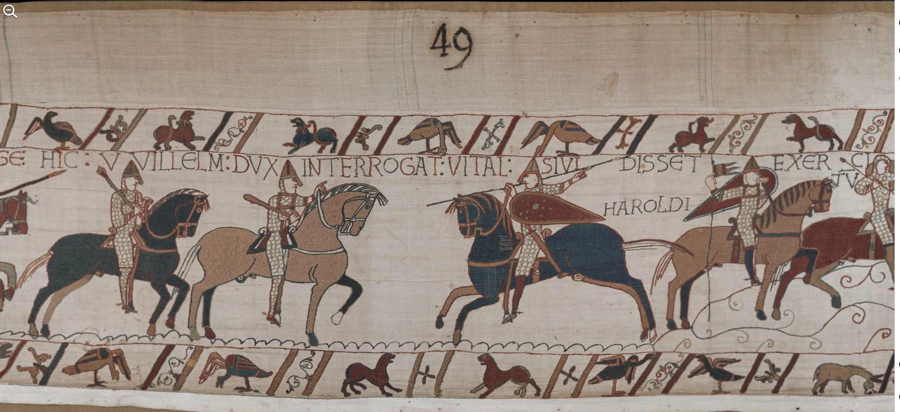 49
SE: HIC: VVILLELM: DVX INTERROGAT: VITAL: SIVI DISSET EXERCI
TV
HAROLDI